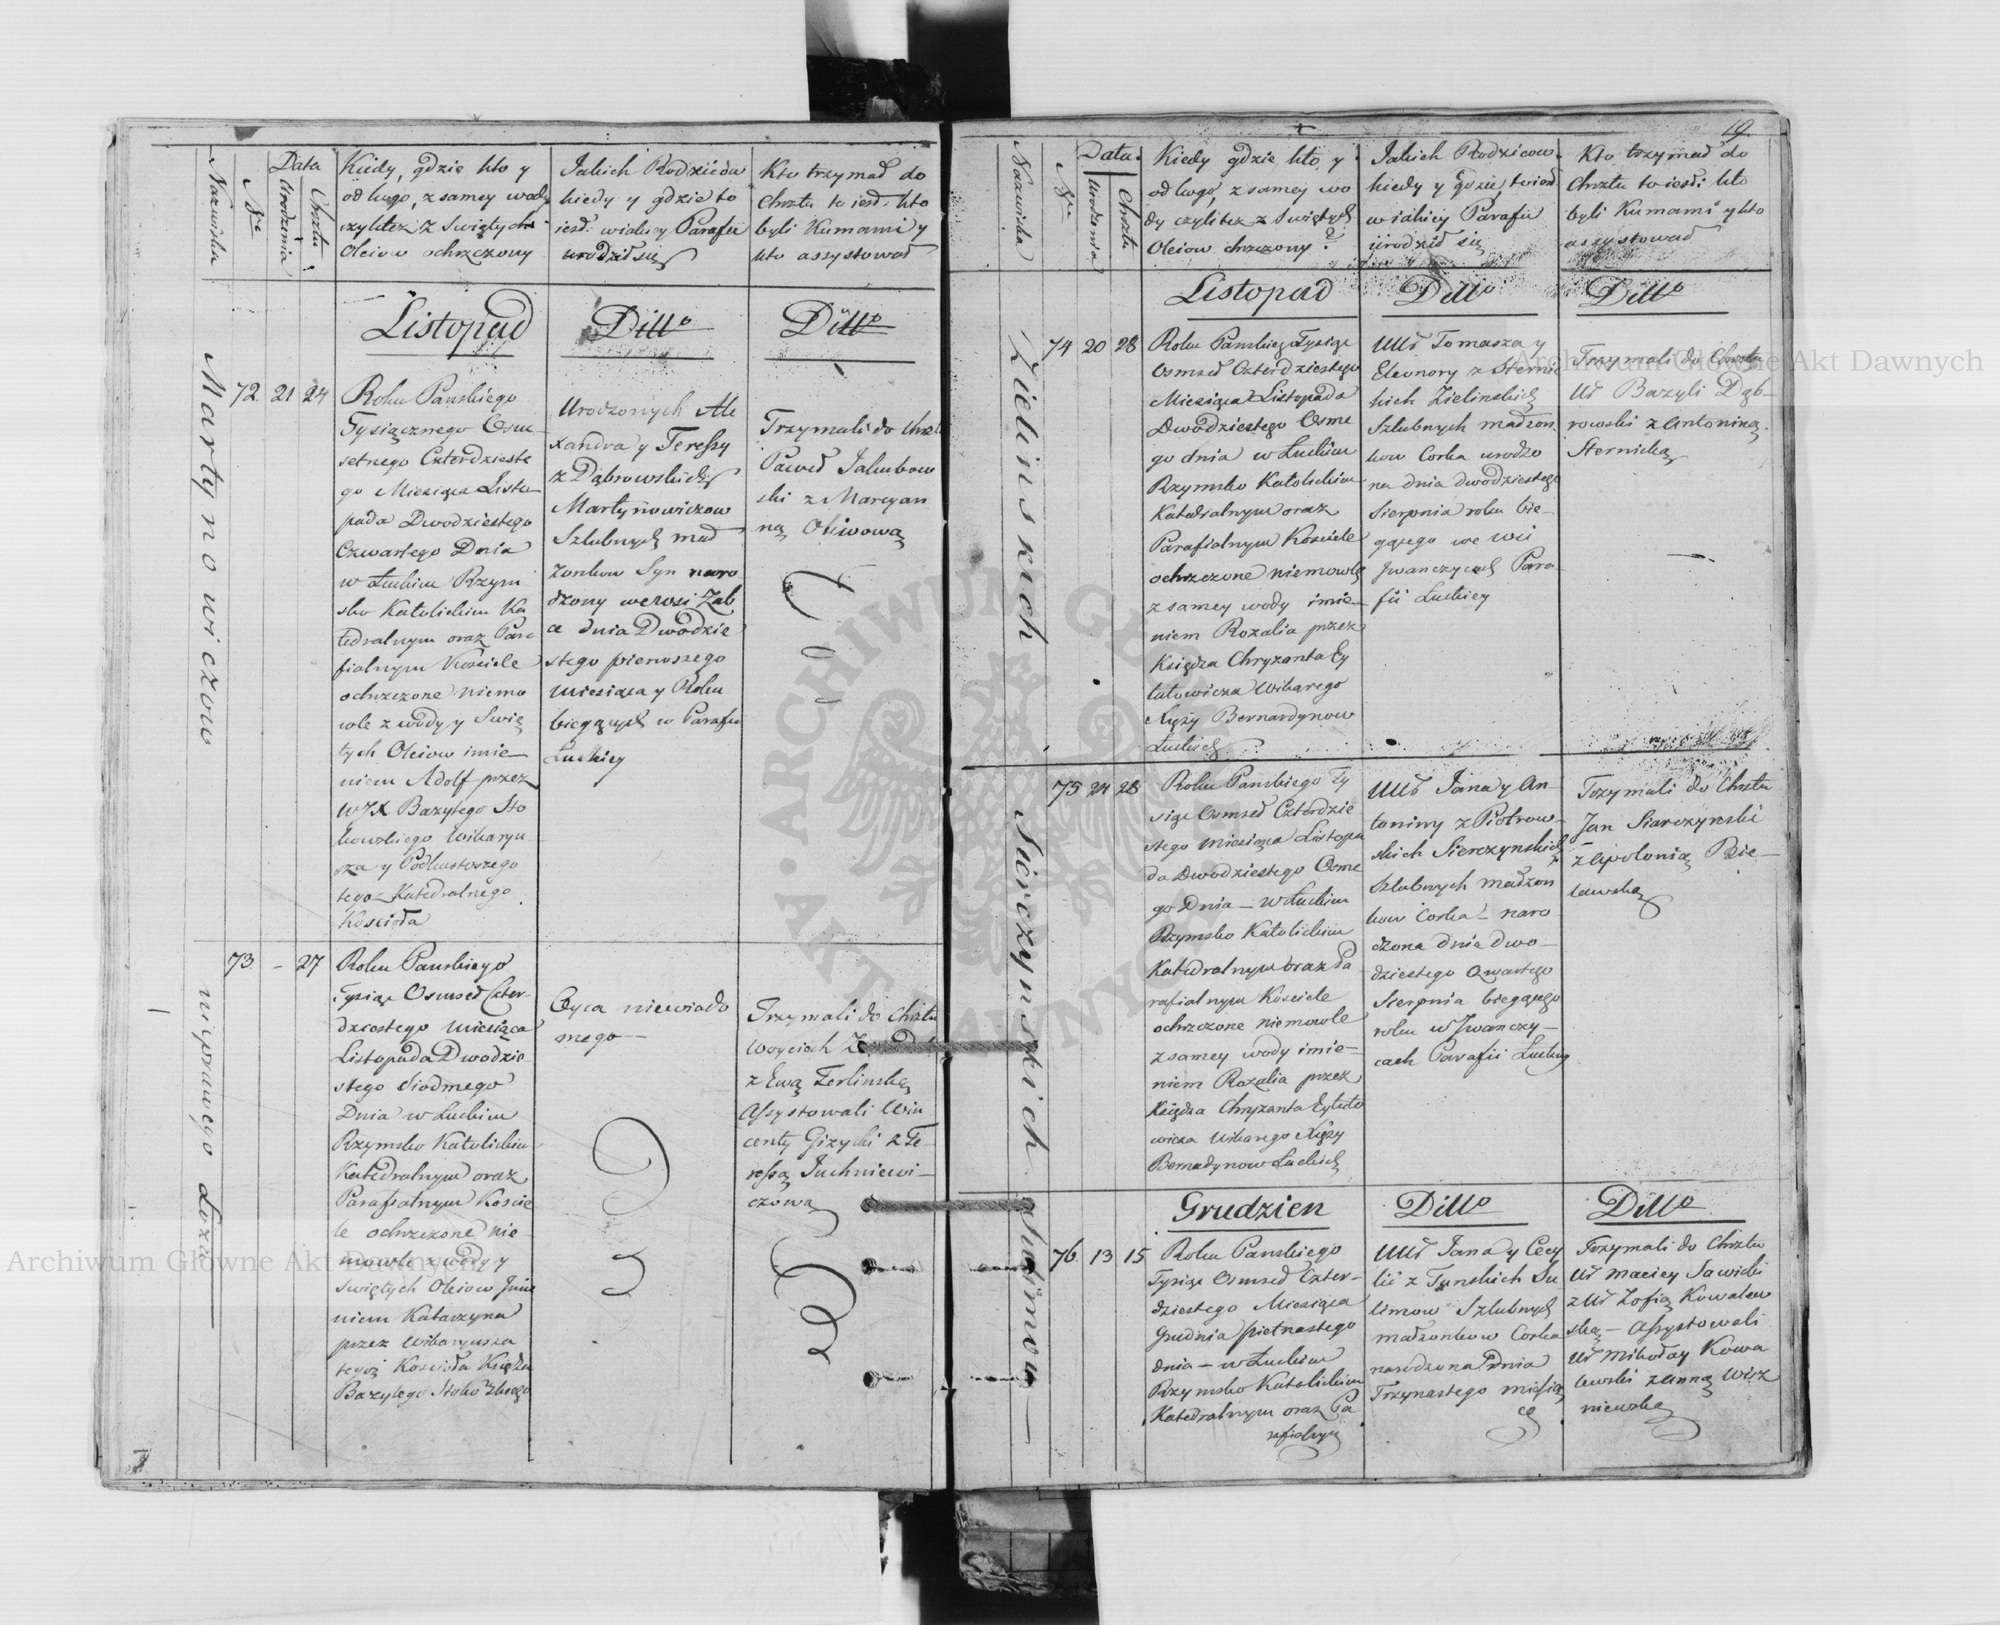 Nazwiska
Nro
Data
Urodzenia
Chrztu
Kiedy, gdzie kto y
od kogo, z samey wody
czylitez z Swiętych
Oleiow ochrzczony
Jakich Rodzicow
kiedy y gdzie to
iest w iakiey Parafii
urodził się
Kto trzymał do
Chrztu to iest kto
byli Kumami y
kto assystował
Listopad
Ditto
Ditto
Martynowiczow
72. 21 24
Roku Panskiego
Tysiącznego Osm-
setnego Czterdzieste
go Miesiąca Listo-
pada Dwodziestego
Czwartego Dnia
w Łuckim Rzym
sko Katolickim Ka
tedralnym oraz Para
fialnym Kosciele
ochrzczone niemo
wle z wody y Swię
tych Oleiow imie-
niem Adolf przez
WJX Bazylego Sto
kowskiego Wikaryu-
sza y Podkustoszego
tego- Katedralnego
Kosciola
Urodzonych Ale
xandra y Teressy
z Dąbrowskich
Martynowiczow
Szlubnych mał
zonkow Syn naro
dzony we wsi Zab
ce dnia Dwodzie
stego pierwszego
miesiąca y Roku
biegących w Parafii
Łuckiey
Trzymali do Chrztu
Paweł Jakubow
ski z Maryan
ną Oliwową
nieprawego Łoza
73. - 27
Roku Panskiego
Tysiąc Osmset Czter-
dziestego miesiąca
Listopada Dwodzie
stego Siodmego
Dnia w Łuckim
Rzymsko Katolickim
Katedralnym oraz
Parafialnym Koscie
le ochrzczone nie
mowle z wody y
swiętych Oleiow Imie
niem Katarzyna
przez Wikaryusza
tegoż Kosciola Księdza
Bazylego Stokowskiego
Oyca niewiado
mego-
Trzymali do Chrztu
Woyciech
z Ewą Terlinską
Assystowali Win
centy Gizycki z Te-
ressą Juchniewi-
czową
19.
Nazwiska
Nro
Data.
Urodzenia
Chrztu
Kiedy gdzie kto y
od kogo, z samey wo
dy czylitez z Swiętych
Oleiow chrzczony?
Jakich Rodzicow.
kiedy y gdzie to iest
w iakiey Parafii
urodził się
Kto trzymał do
Chrztu to iest: kto
byli Kumami y kto
assystował
Listopad
Ditto
Ditto
Zielinskich
74 20 28
Roku Panskiego Tysiąc
Osmset Czterdziestego
Miesiąca Listopada
Dwodziestego Osme
go dnia w Łuckim
Rzymsko Katolickim
Katedralnym oraz
Parafialnym Kosciele
ochrzczone niemowlę
z samey wody imie-
niem Rozalia przez
Księdza Chryzanta Ey
tutowicza Wikarego
Xięży Bernardynow
Łuckich
UUr Tomasza y
Eleonory z Sternic
kich Zielinskich
Szlubnych małzon
kow Corka urodzo
na dnia dwodziestego
Sierpnia roku bie-
gącego we wsi
Jwanczycach Para-
fii Łuckiey
Trzymali do Chrztu
Ur Bazyli Dąb-
rowski z Antoniną
Sternicką
Sierczynskich
75 24 28
Roku Panskiego Ty
siąc Osmset Czterdzie
stego miesiąca Listopa
da Dwodziestego Osme
go Dnia - w Łuckim
Rzymsko Katolickim
Katedralnym oraz Pa
rafialnym Kosciele
ochrzczone niemowle
z samey wody imie-
niem Rozalia przez
Księdza Chryzanta Eytuto
wicza Wikarego Xięży
Bernadynow Łuckich
UUr Jana y An-
toniny z Piotrow-
skich Sierczynskich
Szlubnych małzon
kow Corka- naro
dzona dnia dwo-
dziestego Czwartego
Sierpnia biegącego
roku w Jwanczy-
cach Parafii Łuckiey
Trzymali do Chrztu
Jan Siarczynski
z Apolonią Bie-
lawską
Grudzien
Ditto
Ditto
Sulimow
76. 13 15
Roku Panskiego
Tysiąc Osmset Czter-
dziestego Miesiąca
Grudnia piętnastego
dnia - w Łuckim
Rzymsko Katolickim
Katedralnym oraz Pa
rafialnym
UUr Jana y Cecy
lii z Tynskich Su
limow Szlubnych
małzonkow Corka
narodzona dnia
Trzynastego miesią
ca
Trzymali do Chrztu
Ur Maciey Sawicki
z Ur Zofią Kowalew
ską - Assystowali
Ur Mikołay Kowa
lewski z Anną Wisz
niewską
Archiwum Główne Akt Dawnych
Archiwum Główne Akt Dawnych
ARCHIWUM GŁÓWNE AKT DAWNYCH